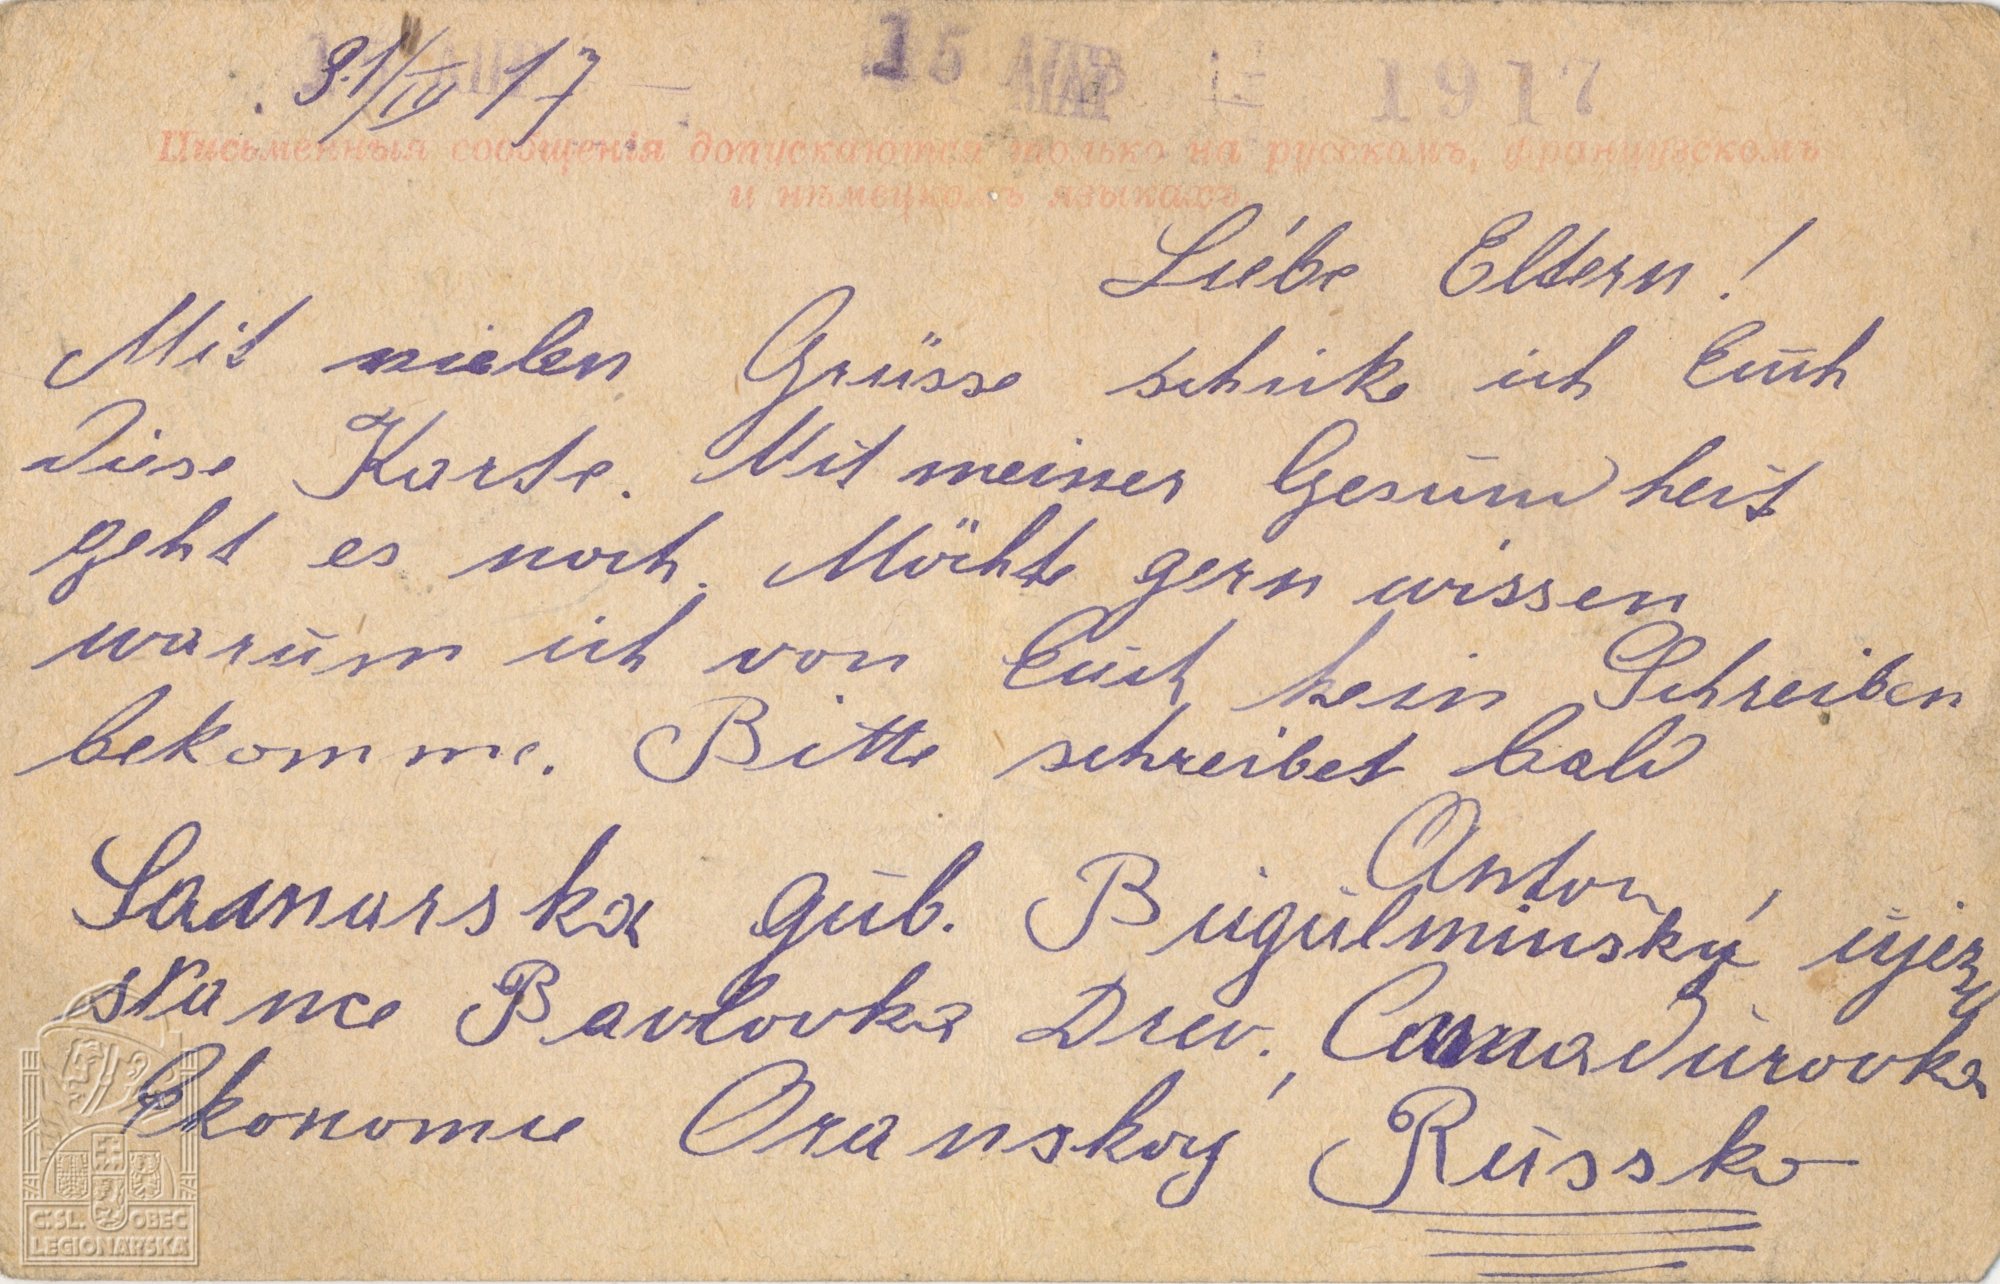 31/IV 17
15 АПР 1917
Письменныя сообщенія допускаются только на русскомъ, французскомъ
и нѣмецкомъ языкахъ
Liebe Eltern!
Mit vielen Grüsse schike ich Euch
diese Karte. Mit meiner Gesundheit
geht es noch. Möchte gern wissen
warum ich von Euch kein Schreiben
bekomme. Bitte schreibet bald
Anton
Samarska gub. Bugulminský ujezd
stance Pavlovka Drev.
Ekonomie Oranskoy, Russko
Č:SL. OBEC
LEGIONÁŘSKÁ